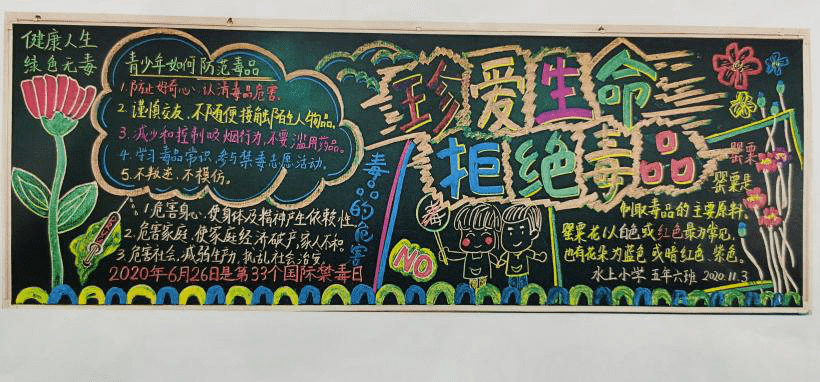 健康人生
绿色无毒
青少年如何防范毒品
1.防止好奇心、认清毒品危害。
2.谨慎交友、不随便接触陌生人物品。
3.减少和控制吸烟行为,不要滥用药品。
4.学习毒品常识,参与禁毒志愿活动。
5.不叛逆、不模仿。
毒品的危害
1.危害身心、使身体及精神产生依赖性
2.危害家庭,使家庭经济破产,家人不和。
3.危害社会、减弱生产力,扰乱社会治安。
2020年6月26日是第33个国际禁毒日
珍爱生命
拒绝毒品
毒
NO
罂粟
罂粟是
制取毒品的主要原料、
罂粟花以白色或红色最为常见,
也有花朵为蓝色或暗红色、紫色。
水上小学 五年六班 2020.11.3